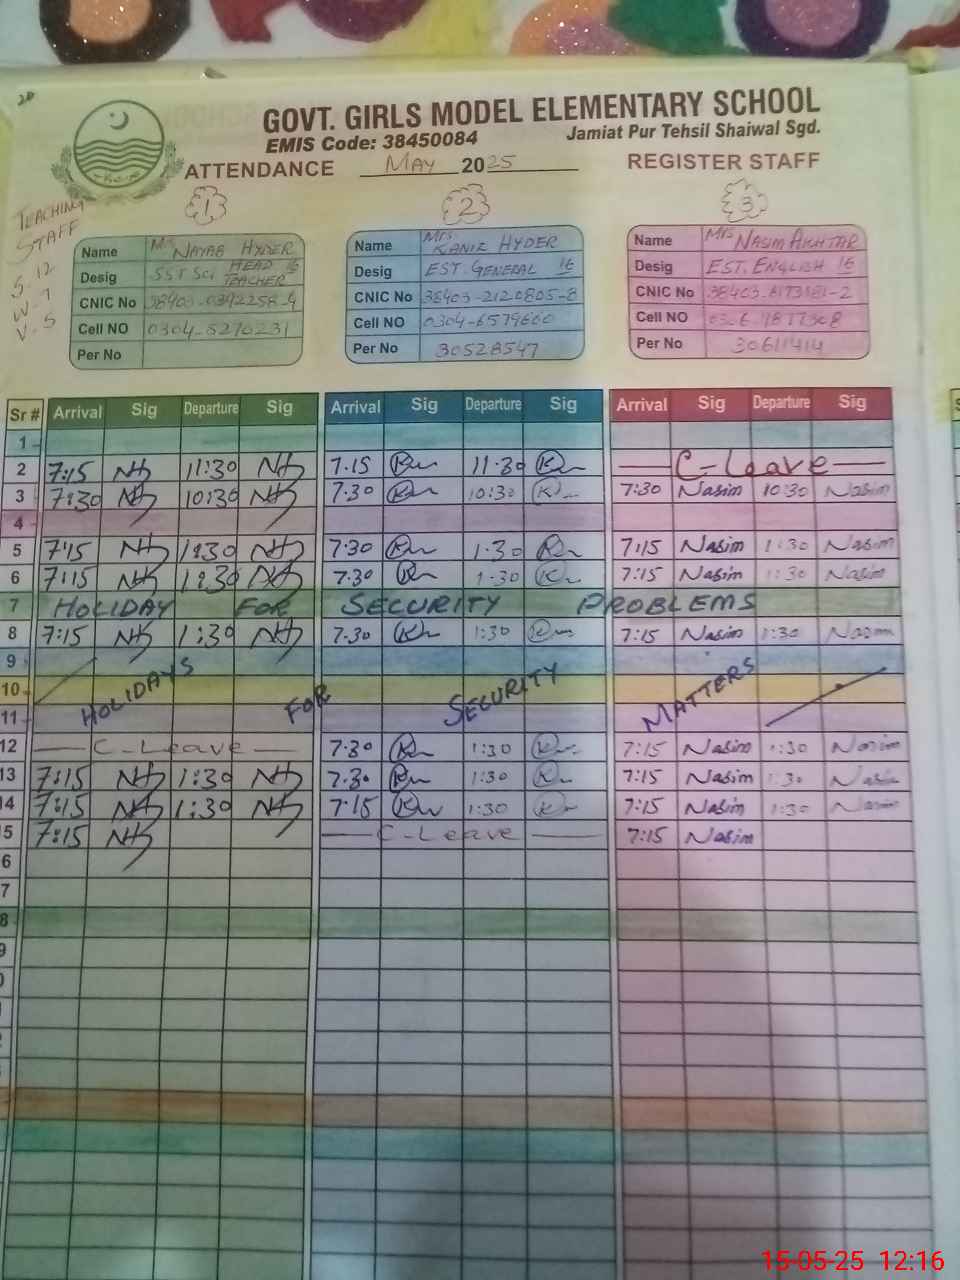 GOVT. GIRLS MODEL ELEMENTARY SCHOOL
EMIS Code: 38450084 Jamiat Pur Tehsil Shaiwal Sgd.
ATTENDANCE MAY 2025 REGISTER STAFF
TEACHING STAFF
S. 12
W. 7
V. 5
1 2 3
Name Mrs NAYAB HYDER Name Mrs KANIZ HYDER Name Mrs NASIM AKHTAR
Desig SST Sci HEAD TEACHER 16 Desig EST. GENERAL 16 Desig EST. ENGLISH 16
CNIC No CNIC No 38403-2120805-8 CNIC No
Cell NO 0304-6270231 Cell NO 0304-6579660 Cell NO
Per No Per No 30528547 Per No 30611414
Sr # Arrival Sig Departure Sig Arrival Sig Departure Sig Arrival Sig Departure Sig
1
2 7:15 11:30 7.15 11.30 C-Leave
3 7:30 10:30 7.30 10:30 7:30 Nasim 10:30 Nasim
4
5 7:15 1:30 7.30 1.30 7:15 Nasim 1:30 Nasim
6 7:15 1:30 7.30 1.30 7:15 Nasim 1:30 Nasim
7 HOLIDAY FOR SECURITY PROBLEMS
8 7:15 1:30 7.30 1:30 7:15 Nasim 1:30 Nasim
9
10 HOLIDAYS FOR SECURITY MATTERS
11
12 C-Leave 7.30 1:30 7:15 Nasim 1:30 Nasim
13 7:15 1:30 7.30 1:30 7:15 Nasim 1:30 Nasim
14 7:15 1:30 7:15 1:30 7:15 Nasim 1:30 Nasim
5 7:15 C-Leave 7:15 Nasim
6
7
8
9
0
15-05-25 12:16